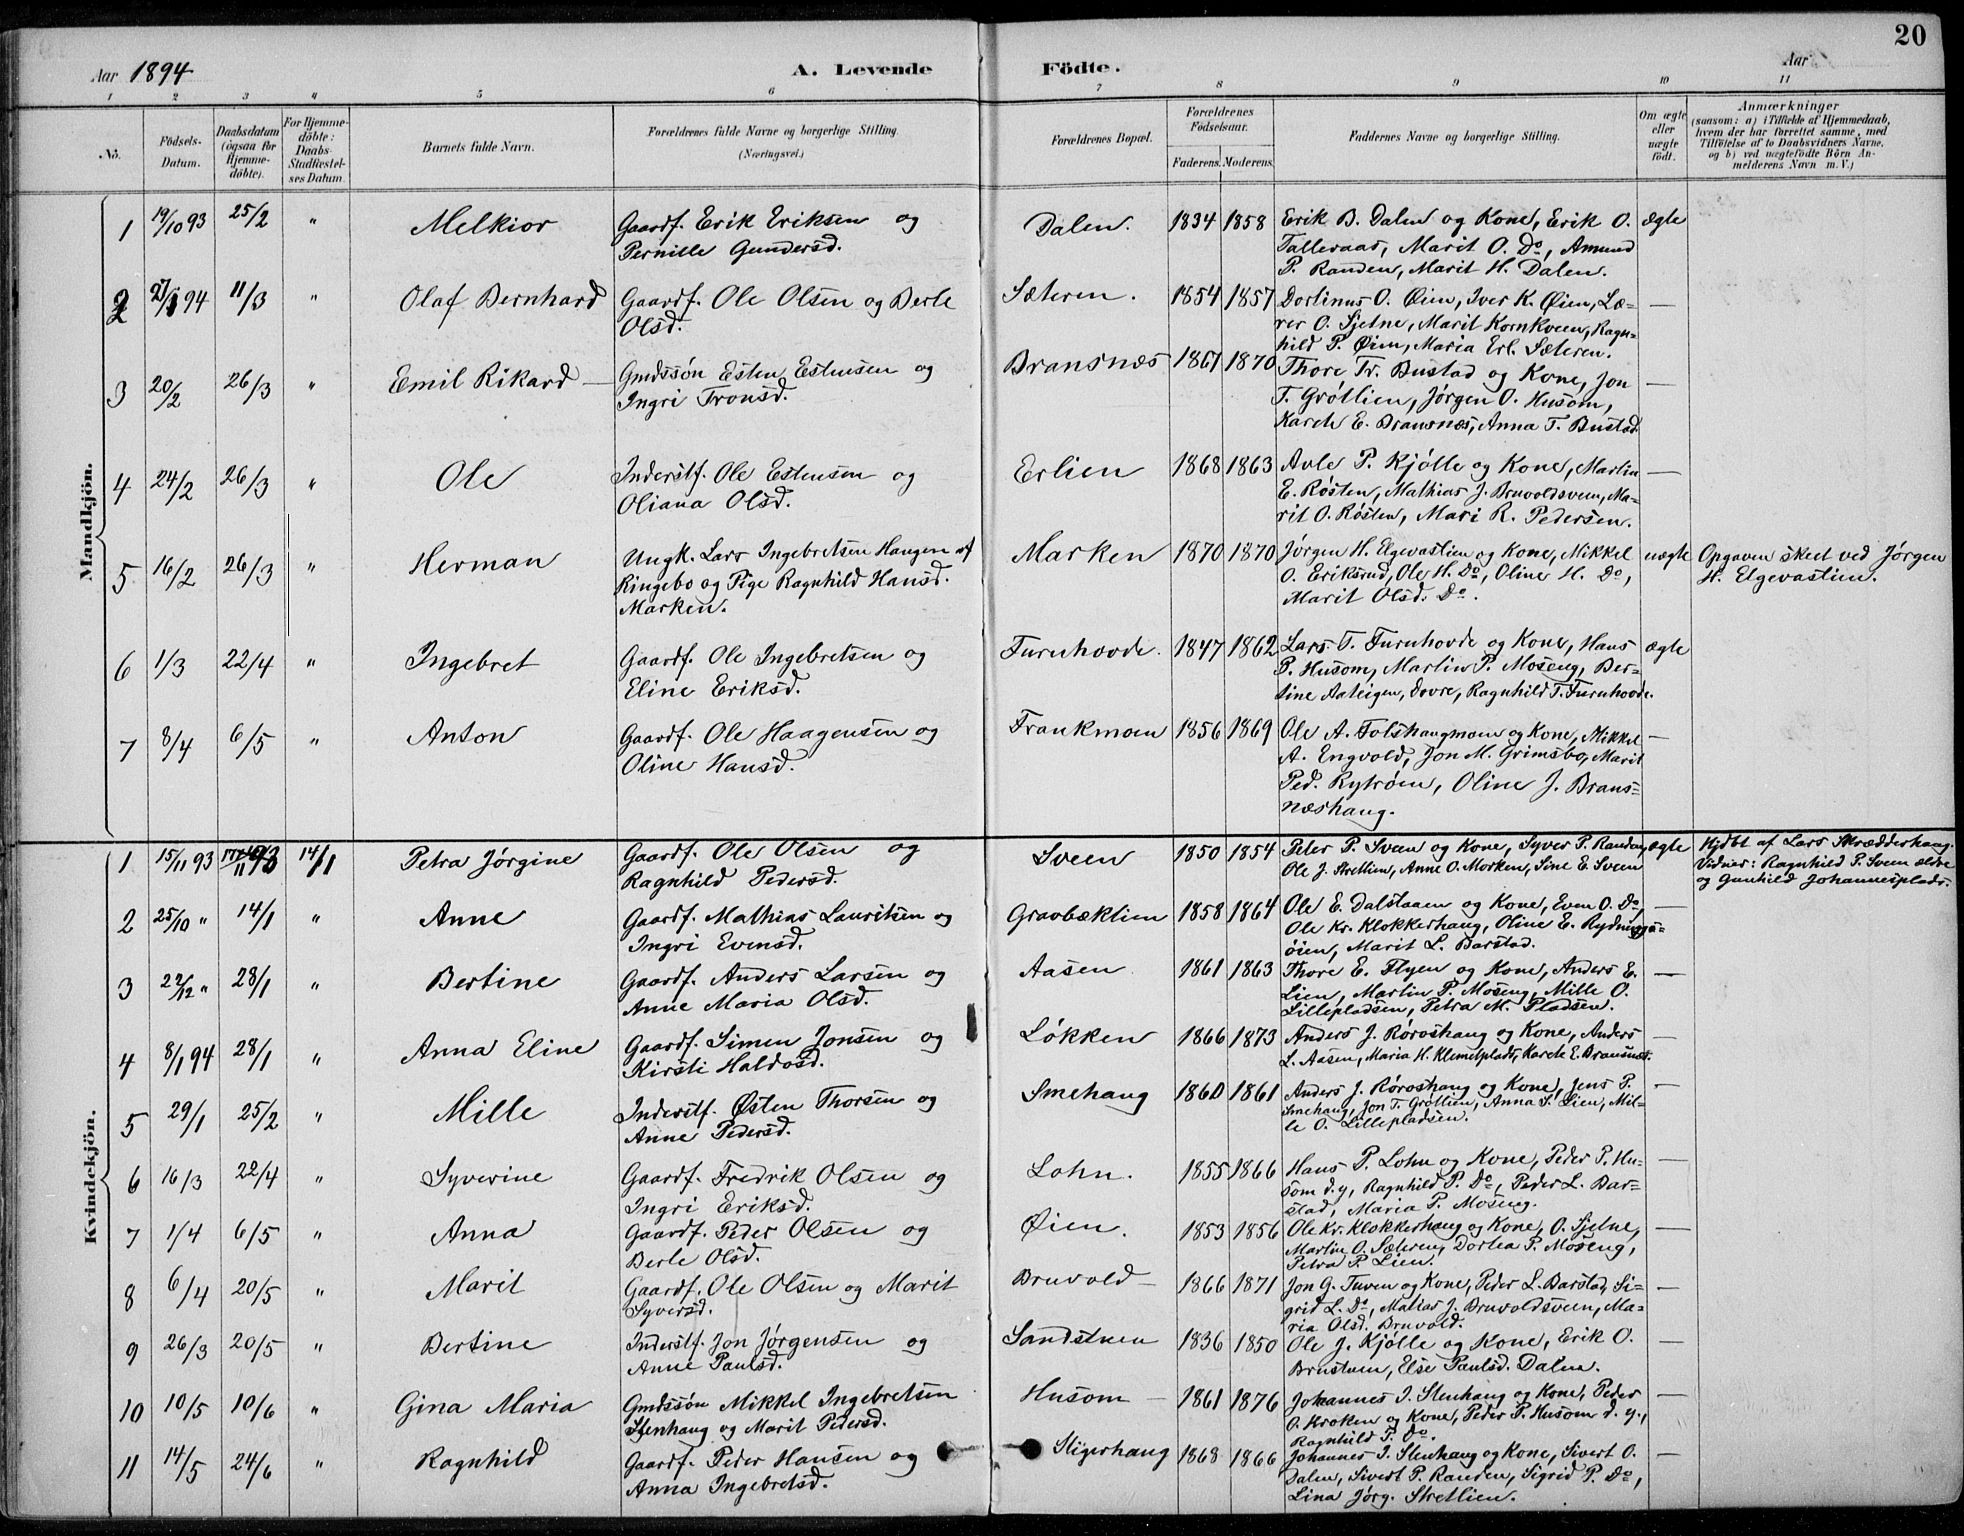 20
Aar 1894 A. Levende Födte. Aar
1 2 3 4 5 6 7 8 9 10 11
No. Födsels-Datum. Daabsdatum (ogsaa for Hjemme-döbte). For Hjemme-döbte: Daabs-Stadfæstel-ses Datum. Barnets fulde Navn. Forældrenes fulde Navne og borgerlige Stilling. (Næringsvei.) Forældrenes Bopæl. Forældrenes Födselsaar. Faderens. Moderens. Faddernes Navne og borgerlige Stilling. Om ægte eller uægte födt. Anmærkninger (saasom: a) i Tilfælde af Hjemmedaab, hvem der har forrettet samme, med Tilföielse af to Daabsvidners Navne, og b) ved uægtefödte Börn An-melderens Navn m. V.)
Mandkjön.
1 19/10 93 25/2 " Melkior Gaardf. Erik Eriksen og Dalen. 1834 1858 Erik B. Dalen og Kone, Erik O. ægte
Pernille Gundersd. Talleraas, Marit O. Do, Amund
P. Randen, Marit H. Dalen.
2 27/1 94 11/3 " Olaf Bernhard Gaardf. Ole Olsen og Berle Sæteren. 1854 1857 Dortinus O. Øien, Iver K. Øien, Læ= —
Olsd. rer O. Sjelne, Marit Kornkveen, Ragn=
hild P. Øien, Maria Erl. Sæteren.
3 20/2 26/3 " Emil Rikard — Gmdssøn Esten Estensen og Bransnæs 1861 1870 Thore Tr. Bustad og Kone, Jon —
Ingri Tronsd. T. Grøtlien, Jørgen O. Husom,
Kareh E. Bransnæs, Anna T. Bustad.
4 24/2 26/3 " Ole Inderstf. Ole Estensen og Erlien 1868 1863 Avle P. Kjølle og Kone, Martin —
Oliana Olsd. E. Røsten, Mathias J. Bruvoldsveen, Ma=
rit O. Røsten, Mari R. Pedersen.
5 16/2 26/3 " Herman Ungk. Lars Ingebretsen Haugen af Marken 1870 1870 Jørgen H. Elgevastien og Kone, Mikkel uægte Opgaven skeet ved Jørgen
Ringebo og Pige Ragnhild Hansd. O. Eriksrud, Ole H. Do, Oline H. Do, H. Elgevastien.
Marken. Marit Olsd. Do.
6 1/3 22/4 " Ingebret Gaardf. Ole Ingebretsen og Furuhovde. 1847 1862 Lars T. Furuhovde og Kone, Hans ægte
Eline Eriksd. P. Husom, Martin P. Moseng, Ber=
tine Aateigen, Dovre, Ragnhild T. Furuhovde.
7 8/4 6/5 " Anton Gaardf. Ole Haagensen og Frankmoen 1856 1869 Ole A. Tolshaugmoen og Kone, Mikkel —
Oline Hansd. A. Engvold, Jon M. Grimsbo, Marit
Ped. Rytrøen, Oline J. Brans=
næshaug.
Kvindekjön.
1 15/11 93 93 14/1 Petra Jørgine Gaardf. Ole Olsen og Sveen 1850 1854 Peter P. Sveen og Kone, Syver P. Randen, ægte Hjdbt af Lars Skrædderhaug.
Ragnhild Pedersd. Ole J. Stretlien, Anne O. Morken, Sine E. Sveen Vidner: Ragnhild P. Sveen ældre
og Gunhild Johannesplads.
2 25/10 " 14/1 " Anne Gaardf. Mathias Lauritsen og Gravbæklien 1858 1864 Ole E. Dalstaaen og Kone, Even O. Do, —
Ingri Evensd. Ole Kr. Klokkerhaug, Oline E. Rydnings=
øien, Marit L. Barstad.
3 22/12 " 28/1 " Bertine Gaardf. Anders Larsen og Aasen 1861 1863 Thore E. Flyen og Kone, Anders E. —
Anne Maria Olsd. Lien, Martin P. Moseng, Mille O.
Lillepladsen, Petra M. Pladsen.
4 8/1 94 28/1 " Anna Eline Gaardf. Simen Jonsen og Løkken 1866 1873 Anders J. Røroshaug og Kone, Anders —
Kirsti Haldosd. L. Aasen, Maria H. Klemetplads, Kareh E. Bransnæs.
5 29/1 25/2 " Mille Inderstf. Østen Thorsen og Smehaug 1860 1861 Anders J. Røroshaug og Kone, Jens P. —
Anne Pedersd. Smehaug, Jon T. Grøtlien, Anna S. Lien, Mil=
le O. Lillepladsen.
6 16/3 22/4 " Syverine Gaardf. Fredrik Olsen og Lohn. 1855 1866 Hans P. Lohn og Kone, Peder P. Hu= —
Ingri Eriksd. som d.y, Ragnhild P. Do, Peder L. Bar=
stad, Maria P. Moseng.
7 1/4 6/5 " Anna Gaardf. Peder Olsen og Øien. 1853 1856 Ole Kr. Klokkerhaug og Kone, O. Sjelne, —
Berle Olsd. Martin O. Sæteren, Dortea P. Moseng,
Petra P. Lien.
8 6/4 20/5 " Marit Gaardf. Ole Olsen og Marit Bruvold — 1866 1871 Jon G. Tuven og Kone, Peder L. Barstad, Si= —
Syversd. grid L. Do, Matias J. Bruvoldsveen, Ma=
ria Olsd. Bruvold.
9 26/3 20/5 " Bertine Inderstf. Jon Jørgensen og Sandstuen 1836 1850 Ole J. Kjølle og Kone, Erik O. —
Anne Paulsd. Brustuen, Else Paulsd. Dalen.
10 10/5 10/6 " Gina Maria Gmdssøn Mikkel Ingebretsen Husom — 1861 1876 Johannes I. Stenhaug og Kone, Peder —
Stenhaug og Marit Pedersd. O. Kroken og Kone, Peder P. Husom d. y.,
Ragnhild P. Do.
11 14/5 24/6 " Ragnhild Gaardf. Peder Hansen og Stigerhaug 1868 1866 Johannes I. Stenhaug og Kone, Sivert O. —
Anna Ingebretsd. Dalen, Sivert P. Randen, Sigrid P. Do,
Lina Jørg. Stretlien.